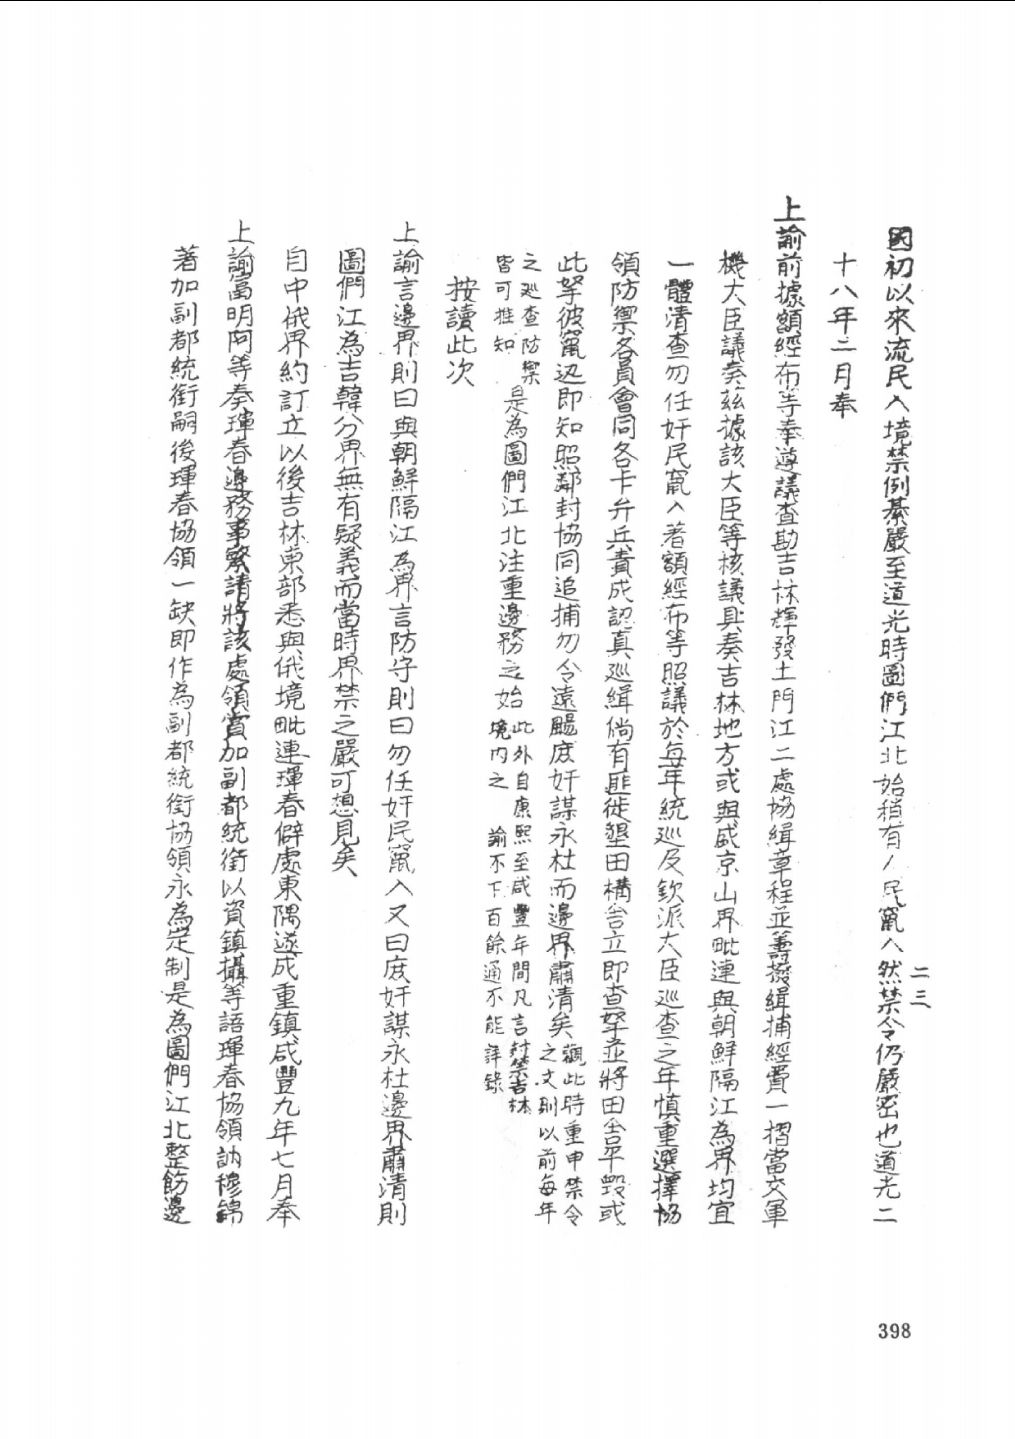 二三
國初以來流民入境禁例綦嚴至道光時圖們江北始稍有人民竄入然禁令仍嚴密也道光二
十八年二月奉
上諭前據額經布等奉遵議查勘吉林輝發土門江二處協緝章程並籌撥緝捕經費一摺當交軍
機大臣議奏茲據該大臣等核議具奏吉林地方或與盛京山界毗連與朝鮮隔江為界均宜
一體清查勿任奸民竄入著額經布等照議於每年統巡及欽派大臣巡查之年慎重選擇協
領防禦各員會同各卡弁兵責成認真巡緝倘有匪徙墾田構舍立即查拏並將田舍平毀或
此拏彼竄迯即知照鄰封協同追捕勿令遠颺庶奸謀永杜而邊界肅清矣觀此時重申禁令
之文則以前每年
之巡查防禦
皆可推知是為圖們江北注重邊務之始此外自康熙至咸豐年間凡言封禁吉林
境內之 諭不下百餘通不能詳錄
按讀此次
上諭言邊界則曰與朝鮮隔江為界言防守則曰勿任奸民竄入又曰庶奸謀永杜邊界肅清則
圖們江為吉韓分界無有疑義而當時界禁之嚴可想見矣
自中俄界約訂立以後吉林東部悉與俄境毗連琿春僻處東隅遂成重鎮咸豐九年七月奉
上諭富明阿等奏琿春邊務事繁請將該處領賞加副都統銜以資鎮攝等語琿春協領訥穆錦
著加副都統銜嗣後琿春協領一缺即作為副都統銜協領永為定制是為圖們江北整飭邊
398